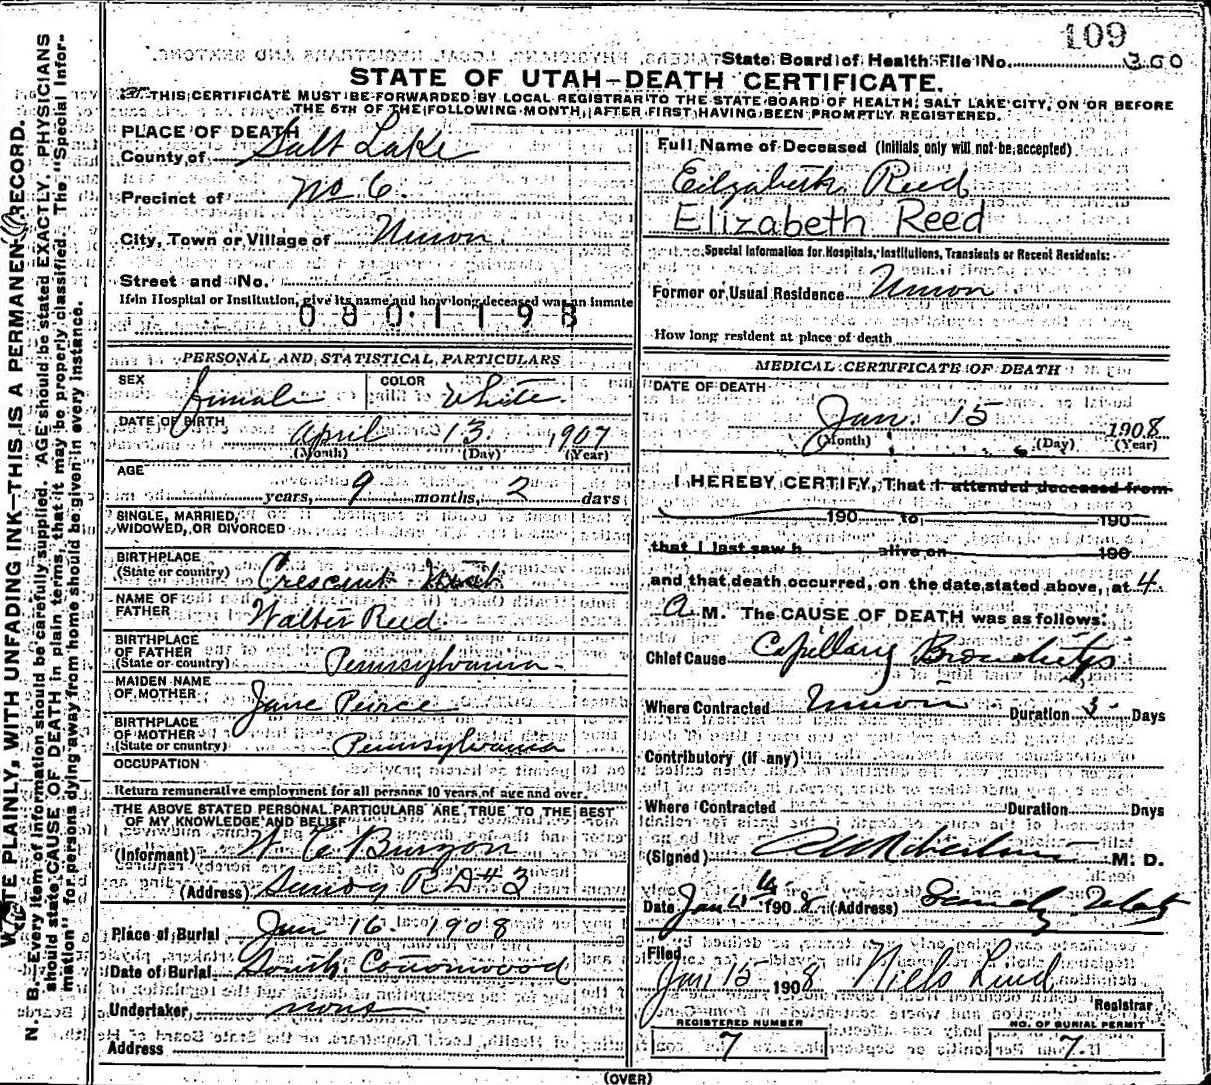 109
State Board of Health File No. 300
STATE OF UTAH–DEATH CERTIFICATE.
THIS CERTIFICATE MUST BE FORWARDED BY LOCAL REGISTRAR TO THE STATE BOARD OF HEALTH, SALT LAKE CITY, ON OR BEFORE
THE 5TH OF THE FOLLOWING MONTH, AFTER FIRST HAVING BEEN PROMPTLY REGISTERED.
PLACE OF DEATH
County of Salt Lake
Precinct of No 6.
City, Town or Village of Union.
Street and No.
If in Hospital or Institution, give its name and how long deceased was an inmate
0801198
PERSONAL AND STATISTICAL PARTICULARS
SEX female COLOR White.
DATE OF BIRTH April 13. 1907
(Month) (Day) (Year)
AGE years, 9 months, 2 days
SINGLE, MARRIED,
WIDOWED, OR DIVORCED
BIRTHPLACE
(State or country) Crescent Utah
NAME OF
FATHER Walter Reed.
BIRTHPLACE
OF FATHER
(State or country) Pennsylvania
MAIDEN NAME
OF MOTHER Jane Peirce
BIRTHPLACE
OF MOTHER
(State or country) Pennsylvania
OCCUPATION
Return remunerative employment for all persons 10 years of age and over.
THE ABOVE STATED PERSONAL PARTICULARS ARE TRUE TO THE BEST
OF MY KNOWLEDGE AND BELIEF
(Informant) W E Burgon
(Address) Sandy R D # 3
Place of Burial Jan 16 1908
Date of Burial South Cottonwood
Undertaker, none
Address
Full Name of Deceased (Initials only will not be accepted)
Eilzabeth Reed
Elizabeth Reed
Special Information for Hospitals, Institutions, Transients or Recent Residents:
Former or Usual Residence Union
How long resident at place of death
MEDICAL CERTIFICATE OF DEATH
DATE OF DEATH
Jan. 15 1908
(Month) (Day) (Year)
I HEREBY CERTIFY, That I attended deceased from
190 to 190
that I last saw h alive on 190
and that death occurred, on the date stated above, at 4
A M. The CAUSE OF DEATH was as follows:
Chief Cause Capillary Bronchitys
Where Contracted Union Duration 3 Days
Contributory (if any)
Where Contracted Duration Days
(Signed) M. D.
Date Jan 1908 (Address) Sandy Utah
Filed
Jan 15 1908 Niels Lind
Registrar
REGISTERED NUMBER NO. OF BURIAL PERMIT
7 7.
(OVER)
WRITE PLAINLY, WITH UNFADING INK—THIS IS A PERMANENT RECORD.
N. B.—Every item of information should be carefully supplied. AGE should be stated EXACTLY. PHYSICIANS
should state CAUSE OF DEATH in plain terms, that it may be properly classified. The "Special Infor-
mation" for persons dying away from home should be given in every instance.